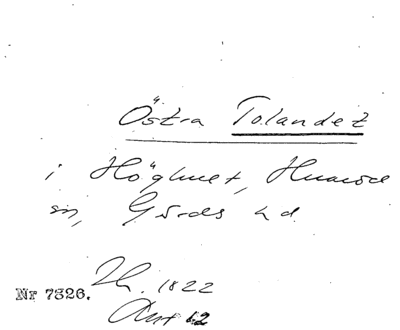 Östra Tolandet
i Höghult, Huaröd
sn, Gärds hd.
Nr 7326. Th. 1822
Avt 62